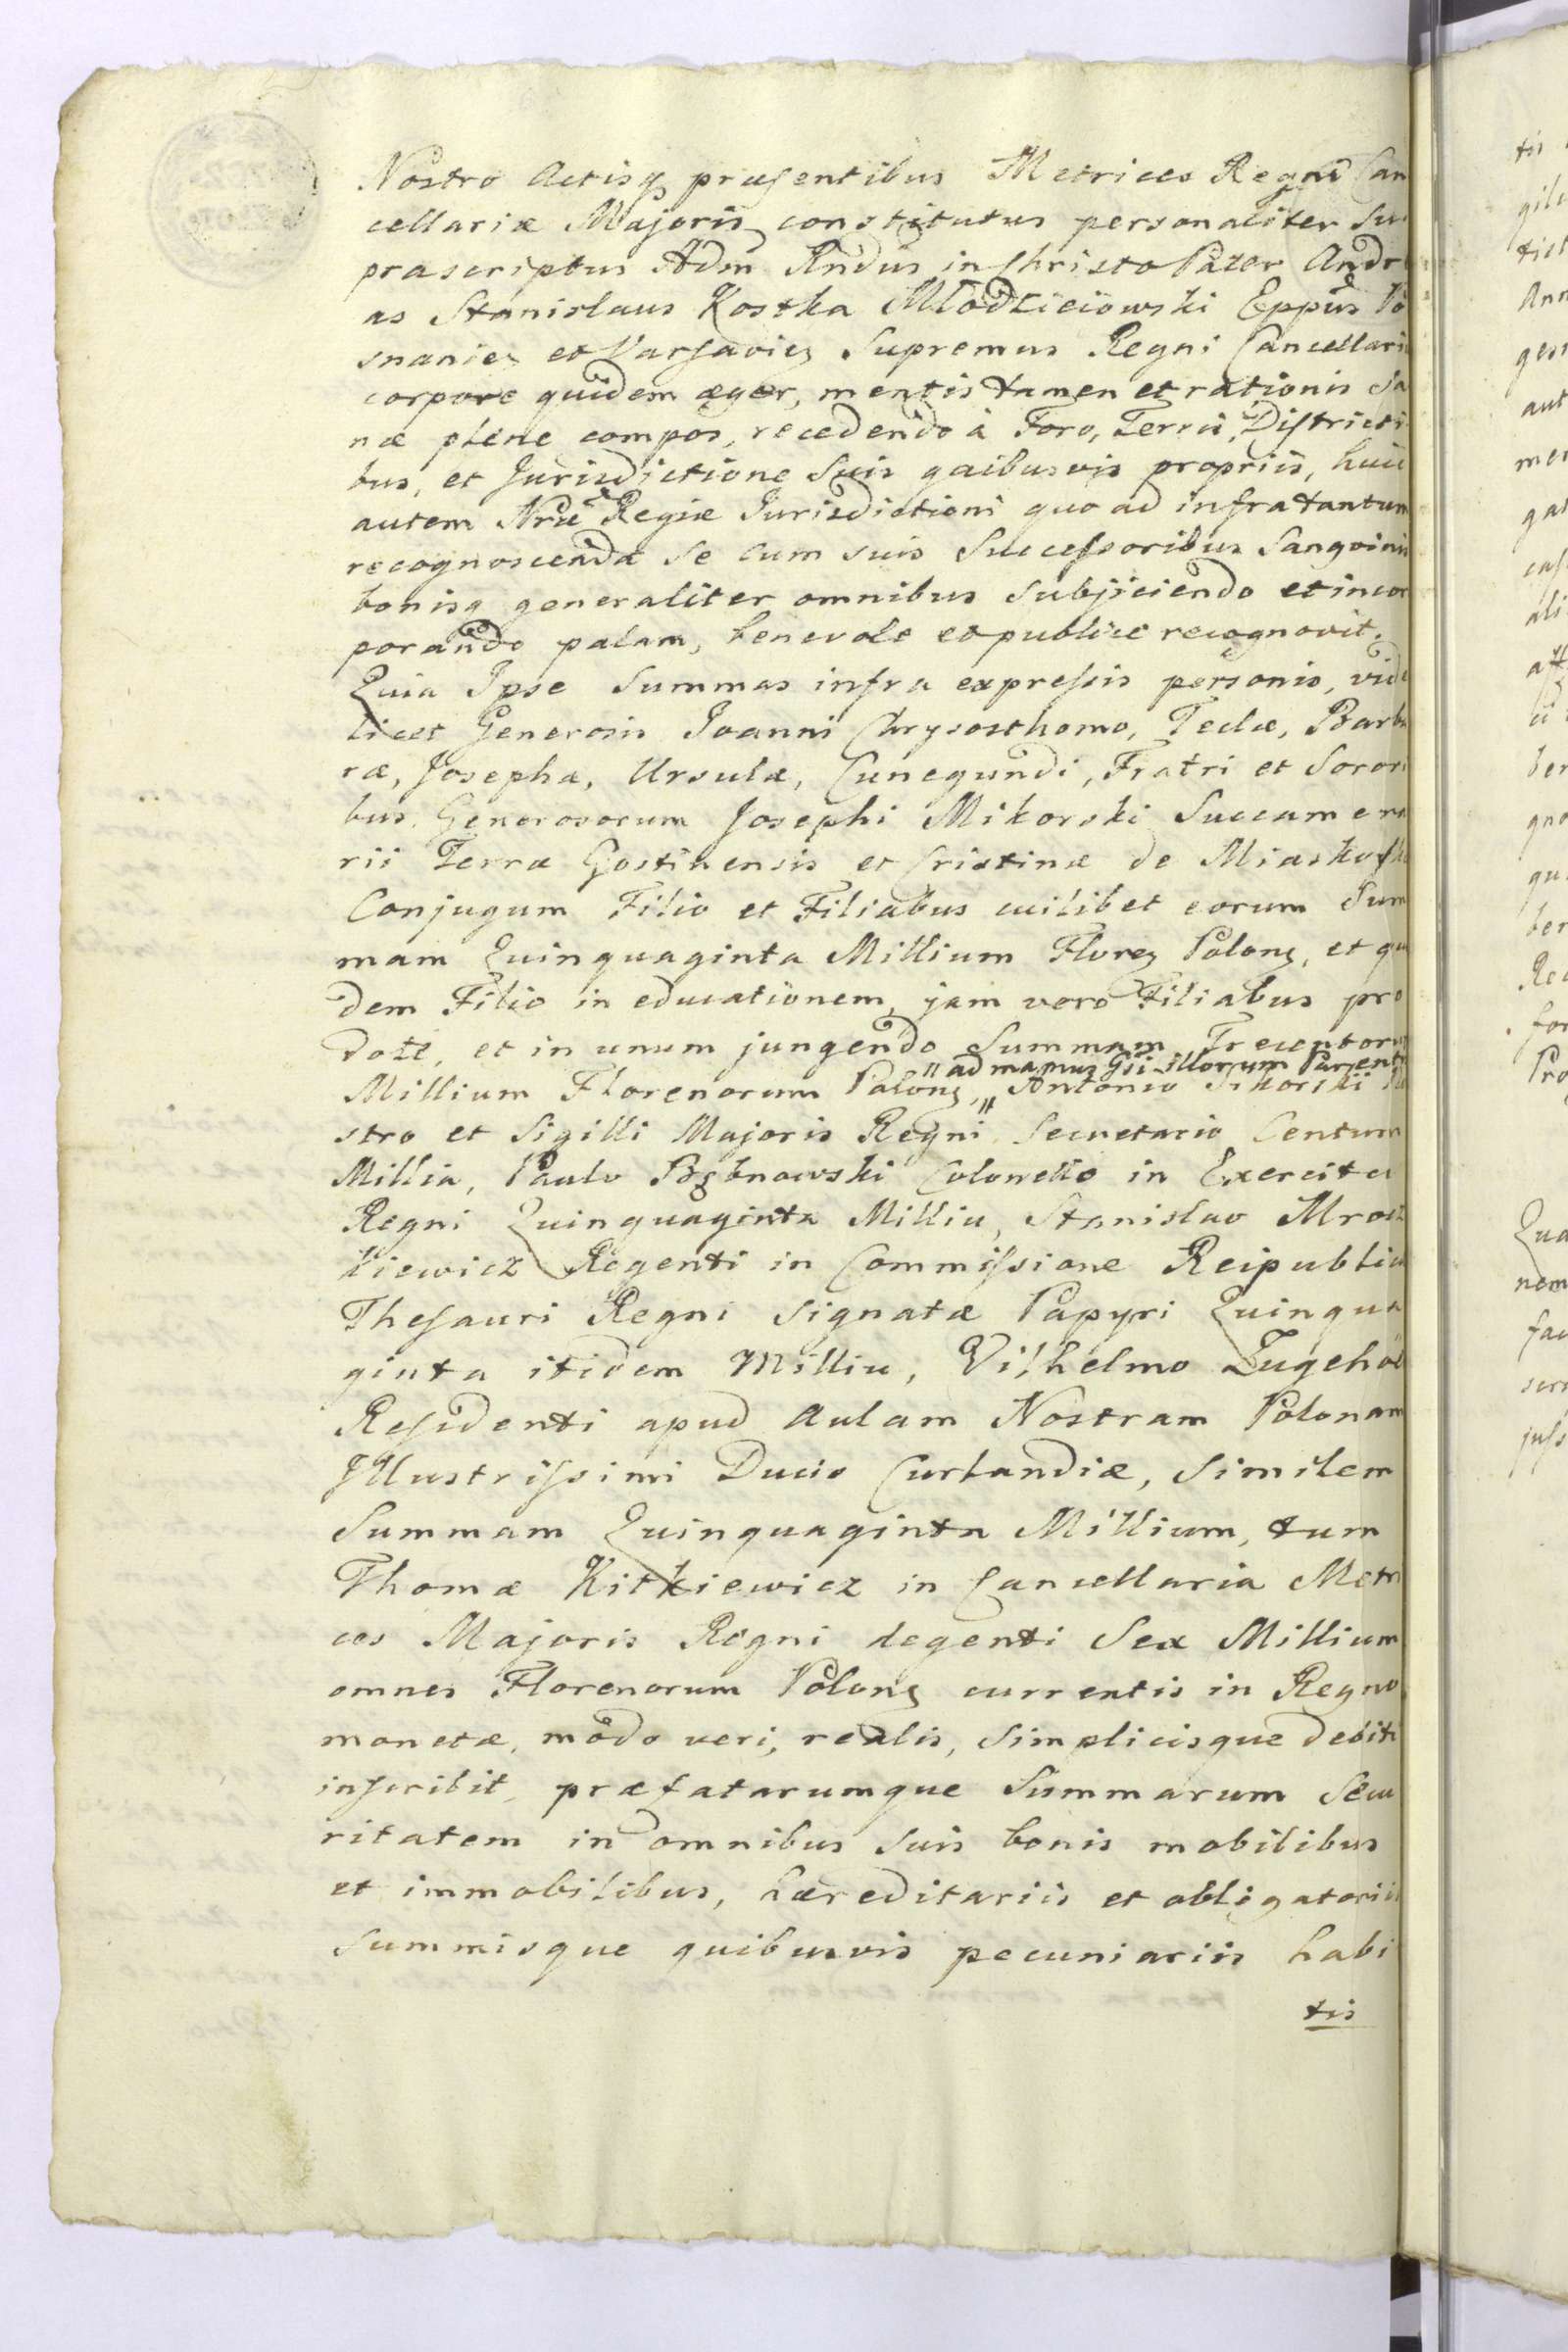 Nostro Actisq præsentibus Metrices Regni Can
cellariæ Majoris constitutus personaliter Su
prascriptus Adm Rndus in Christo Pater Andre
as Stanislaus Kostka Młodzieiowski Eppus Po
snanien et Varsavien Supremus Regni Cancellari
corpore quidem æger, mentis tamen et rationis Sa
næ plene compos, recedendo à Foro, Terris, Districti
bus, et Jurisdictione Suis quibusvis propriis, huic
autem Nræ Regiæ Jurisdictioni quo ad infra tantum
recognoscenda Se cum suis Successoribus Sangvinis
bonisq generaliter omnibus Subjiciendo et incor
porando palam, benevole et publice recognovit.
Quia Ipse Summas infra expressis personis, vide
licet Generosis Joanni Chrysosthomo, Teclæ, Barba
ræ, Josephæ, Ursulæ, Cunegundi, Fratri et Sorori
bus, Generosorum Josephi Mikorski Succamera
rii Terræ Gostinensis et Cristinæ de Miaskofki
Conjugum Filio et Filiabus cuilibet eorum Sum
mam Quinquaginta Millium Floren Polon, et qui
dem Filio in educationem, jam vero Filiabus pro
dote, et in unum jungendo Summam Trecentorum
" ad manus Gsi illorum Parentis
Millium Florenorum Polon, " Antonio Sikorski
stro et Sigilli Majoris Regni Secretario Centum
Millia, Paulo Bębnowski Colonello in Exercitu
Regni Quinquaginta Millia, Stanislao Mrocz
kiewicz Regenti in Commissione Reipublicæ
Thesauri Regni Signatæ Papyri Quinqua
ginta itidem Millia, Vilhelmo Zugehör
Residenti apud Aulam Nostram Polonam
Illustrissimi Ducis Curlandiæ, Similem
Summam Quinquaginta Millium, tum
Thomæ Kitkiewicz in Cancellaria Metri
ces Majoris Regni degenti Sex Millium
omnes Florenorum Polon currentis in Regno
monetæ, modo veri, realis, Simplicisque debiti
inscribit, præfatarumque Summarum Secu
ritatem in omnibus Suis bonis mobilibus
et immobilibus, hæreditariis et obligatoriis
Summisque quibusvis pecuniariis habi
tis